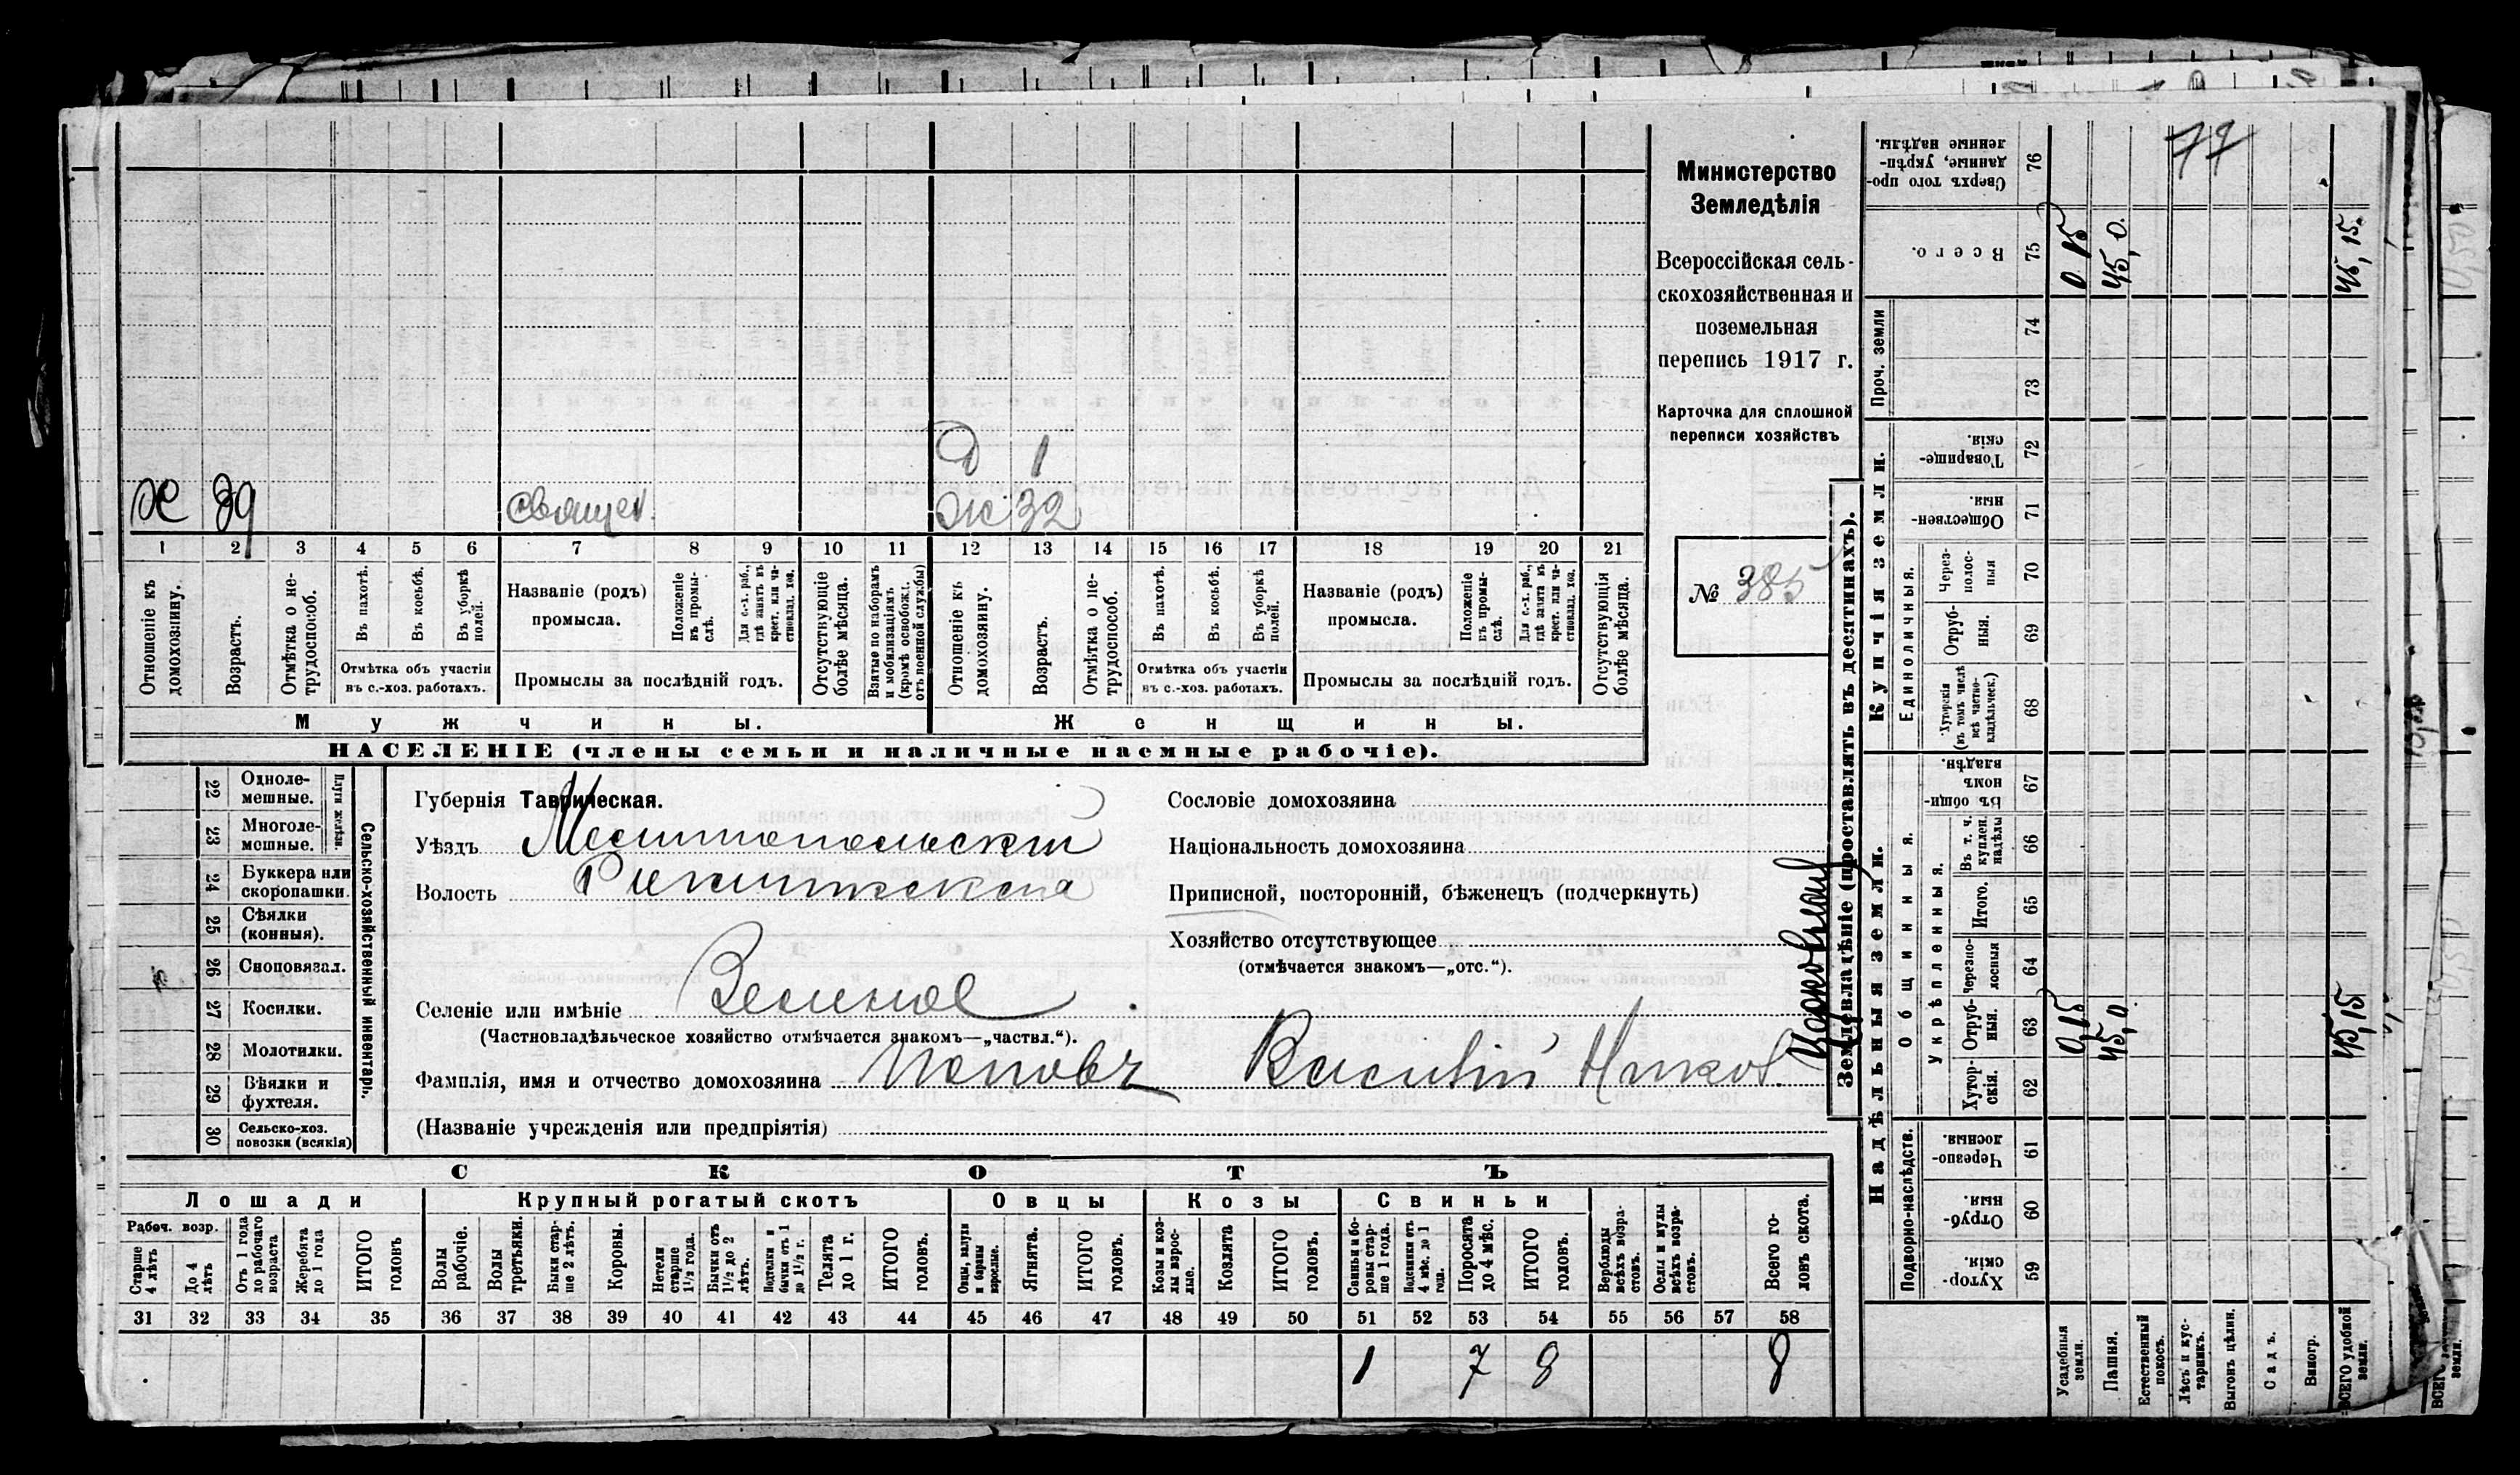 77
Министерство
Земледѣлія
Всероссійская сель-
скохозяйственная и
поземельная
перепись 1917 г.
Карточка для сплошной
переписи хозяйствъ
№ 385
Д 1
Х 39 священ. Ж 32
1 2 3 4 5 6 7 8 9 10 11 12 13 14 15 16 17 18 19 20 21
Отношеніе къ домохозяину.
Возрастъ.
Отмѣтка о не-трудоспособ.
Въ пахотѣ.
Въ косьбѣ.
Въ уборкѣ полей.
Отмѣтка объ участіи
въ с.-хоз. работахъ.
Названіе (родъ)
промысла.
Положеніе въ промы-слѣ.
Для с.-х. раб., гдѣ занятъ въ крест. или ча-стновлад. хоз.
Промыслы за послѣдній годъ.
Отсутствующіе болѣе мѣсяца.
Взятые по наборамъ и мобилизаціямъ (кромѣ освобожд. отъ военной службы)
Отношеніе къ домохозяину.
Возрастъ.
Отмѣтка о не-трудоспособ.
Въ пахотѣ.
Въ косьбѣ.
Въ уборкѣ полей.
Отмѣтка объ участіи
въ с.-хоз. работахъ.
Названіе (родъ)
промысла.
Положеніе въ промы-слѣ.
Для с.-х. раб., гдѣ занята въ крест. или ча-стновлад. хоз.
Промыслы за послѣдній годъ.
Отсутствующія болѣе мѣсяца.
Мужчины. Женщины.
НАСЕЛЕНІЕ (члены семьи и наличные наемные рабочіе).
Сельско-хозяйственный инвентарь.
Плуги желѣзн.
22 Одноле-мешные.
23 Многоле-мешные.
24 Буккера или скоропашки.
25 Сѣялки (конныя).
26 Сноповязал.
27 Косилки.
28 Молотилки.
29 Вѣялки и фухтеля.
30 Сельско-хоз. повозки (всякія)
Губернія Таврическая.
Уѣздъ Мелитопольскій
Волость
Селеніе или имѣніе Зеленое
(Частновладѣльческое хозяйство отмѣчается знакомъ—„частвл.“).
Фамилія, имя и отчество домохозяина Поповъ Василій Никол.
(Названіе учрежденія или предпріятія)
Сословіе домохозяина
Національность домохозяина
Приписной, посторонній, бѣженецъ (подчеркнуть)
Хозяйство отсутствующее
(отмѣчается знакомъ—„отс.“).
СКОТЪ
Лошади Крупный рогатый скотъ Овцы Козы Свиньи
Рабоч. возр.
Старше 4 лѣтъ
До 4 лѣтъ
Отъ 1 года до рабочаго возраста
Жеребята до 1 года
ИТОГО головъ
Волы рабочіе.
Волы третьяки.
Быки стар-ше 2 лѣтъ.
Коровы.
Нетели старше 1½ года.
Бычки отъ 1½ до 2 лѣтъ.
Подтелки и бычки отъ 1 до 1½ г.
Телята до 1 г.
ИТОГО головъ.
Овцы, валухи и бараны взрослые.
Ягнята.
ИТОГО головъ.
Козы и коз-лы взрос-лые.
Козлята
ИТОГО головъ.
Свиньи и бо-ровы стар-ше 1 года.
Подсвинки отъ 4 мѣс. до 1 года.
Поросята до 4 мѣс.
ИТОГО головъ.
Верблюды всѣхъ возра-стовъ.
Ослы и мулы всѣхъ возра-стовъ.
Всего го-ловъ скота.
31 32 33 34 35 36 37 38 39 40 41 42 43 44 45 46 47 48 49 50 51 52 53 54 55 56 57 58
1 7 8 8
Землевладѣніе (проставлять въ десятинахъ).
Надѣльныя земли. Купчія земли. Проч. земли
Подворно-наслѣдств. Общинныя. Укрѣпленныя. Единоличныя.
Хутор-скія. 59
Отруб-ныя. 60
Черезпо-лосныя. 61
Хутор-скія. 62
Отруб-ныя. 63 0,15 45,0 45,15
Черезпо-лосныя 64
Итого. 65
Въ т. ч. куплен. надѣлы 66
Въ общин-номъ владѣн. 67
Хуторскія (въ томъ числѣ всѣ частно-владѣльческ.) 68
Отруб-ныя. 69
Через-полос-ныя 70
Обществен-ныя 71
Товарище-скія. 72
73
74
Всего. 75 0 15 45,0. 45,15.
Сверхъ того про-данные, укрѣп-ленные надѣлы. 76
Усадебныя земли.
Пашня.
Естественный покосъ.
Лѣсъ и кус-тарникъ.
Выгонъ цѣлин.
Садъ.
Виногр.
ВСЕГО удобной земли.